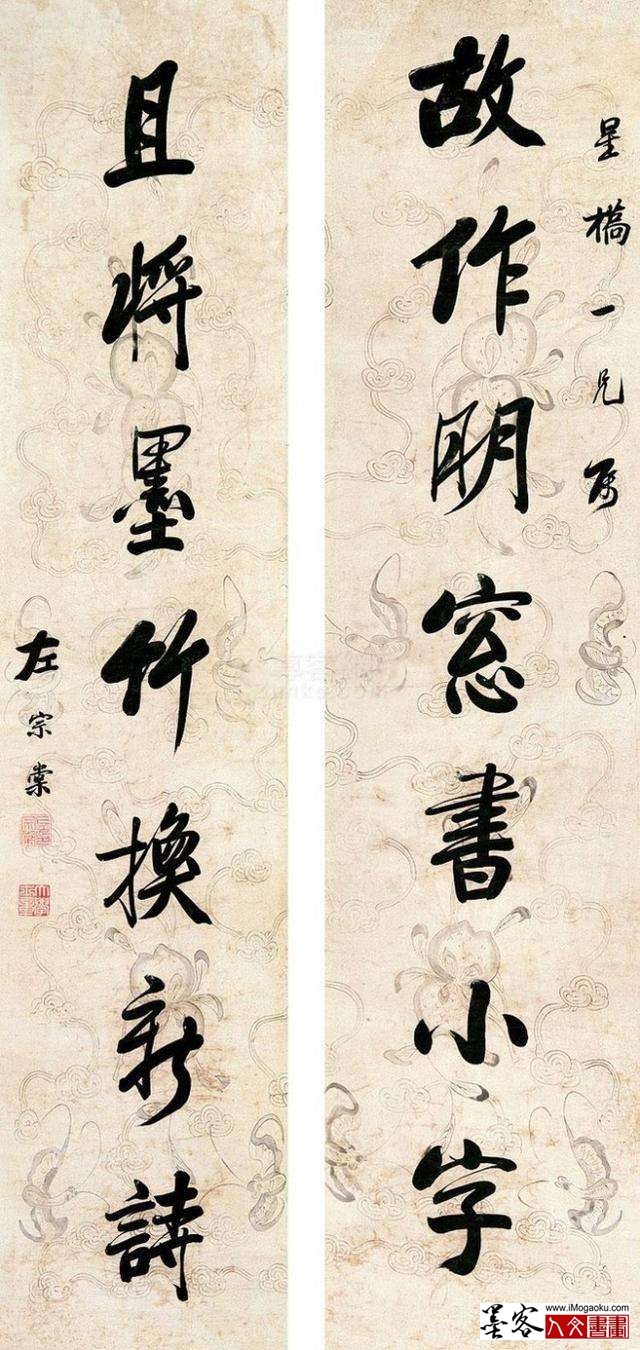 星槗一兄属
故作明窓書小字
且將墨竹換新詩
左宗棠
www.iMogaoku.com
墨客人文書畫